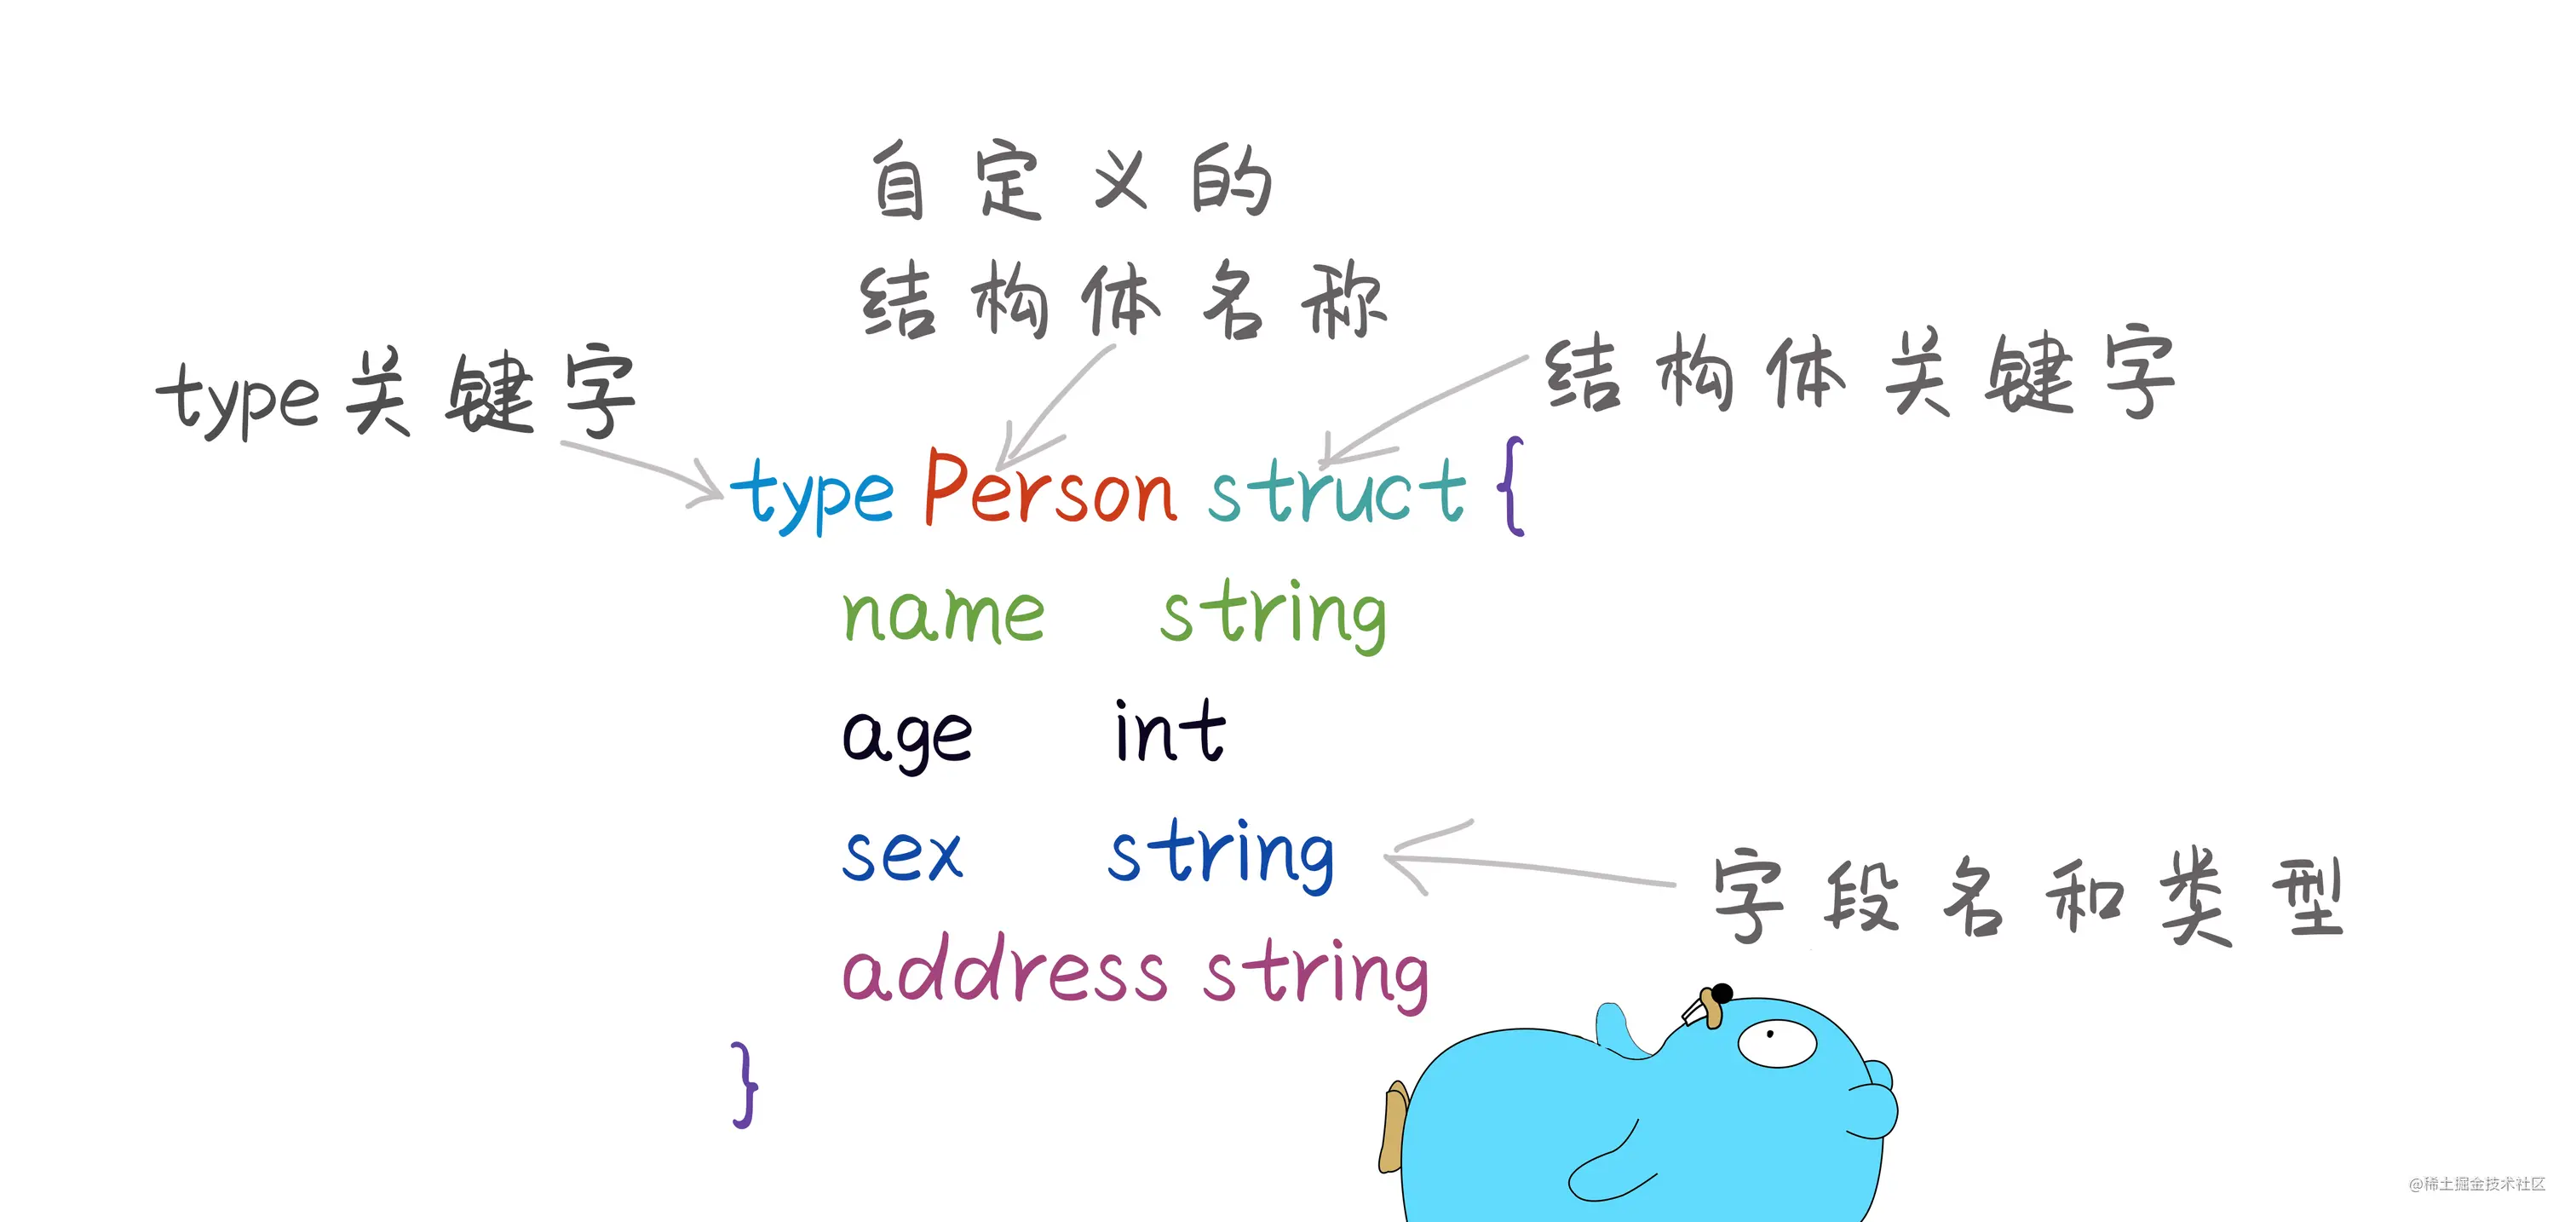 自定义的
结构体名称
type关键字
结构体关键字
type Person struct {
name string
age int
sex string
字段名和类型
address string
}
@稀土掘金技术社区